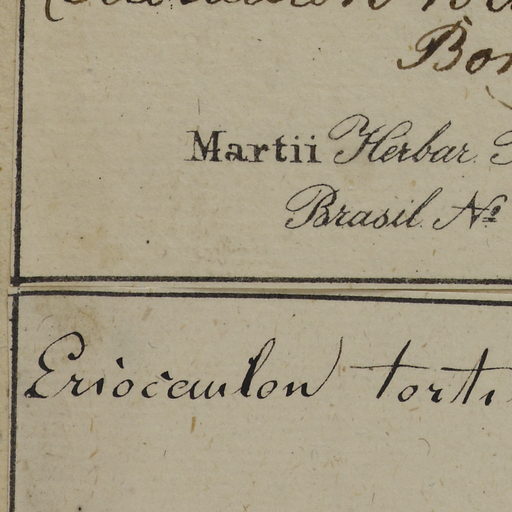 Bon
Martii Herbar.
Brasil. No
Eriocaulon torti